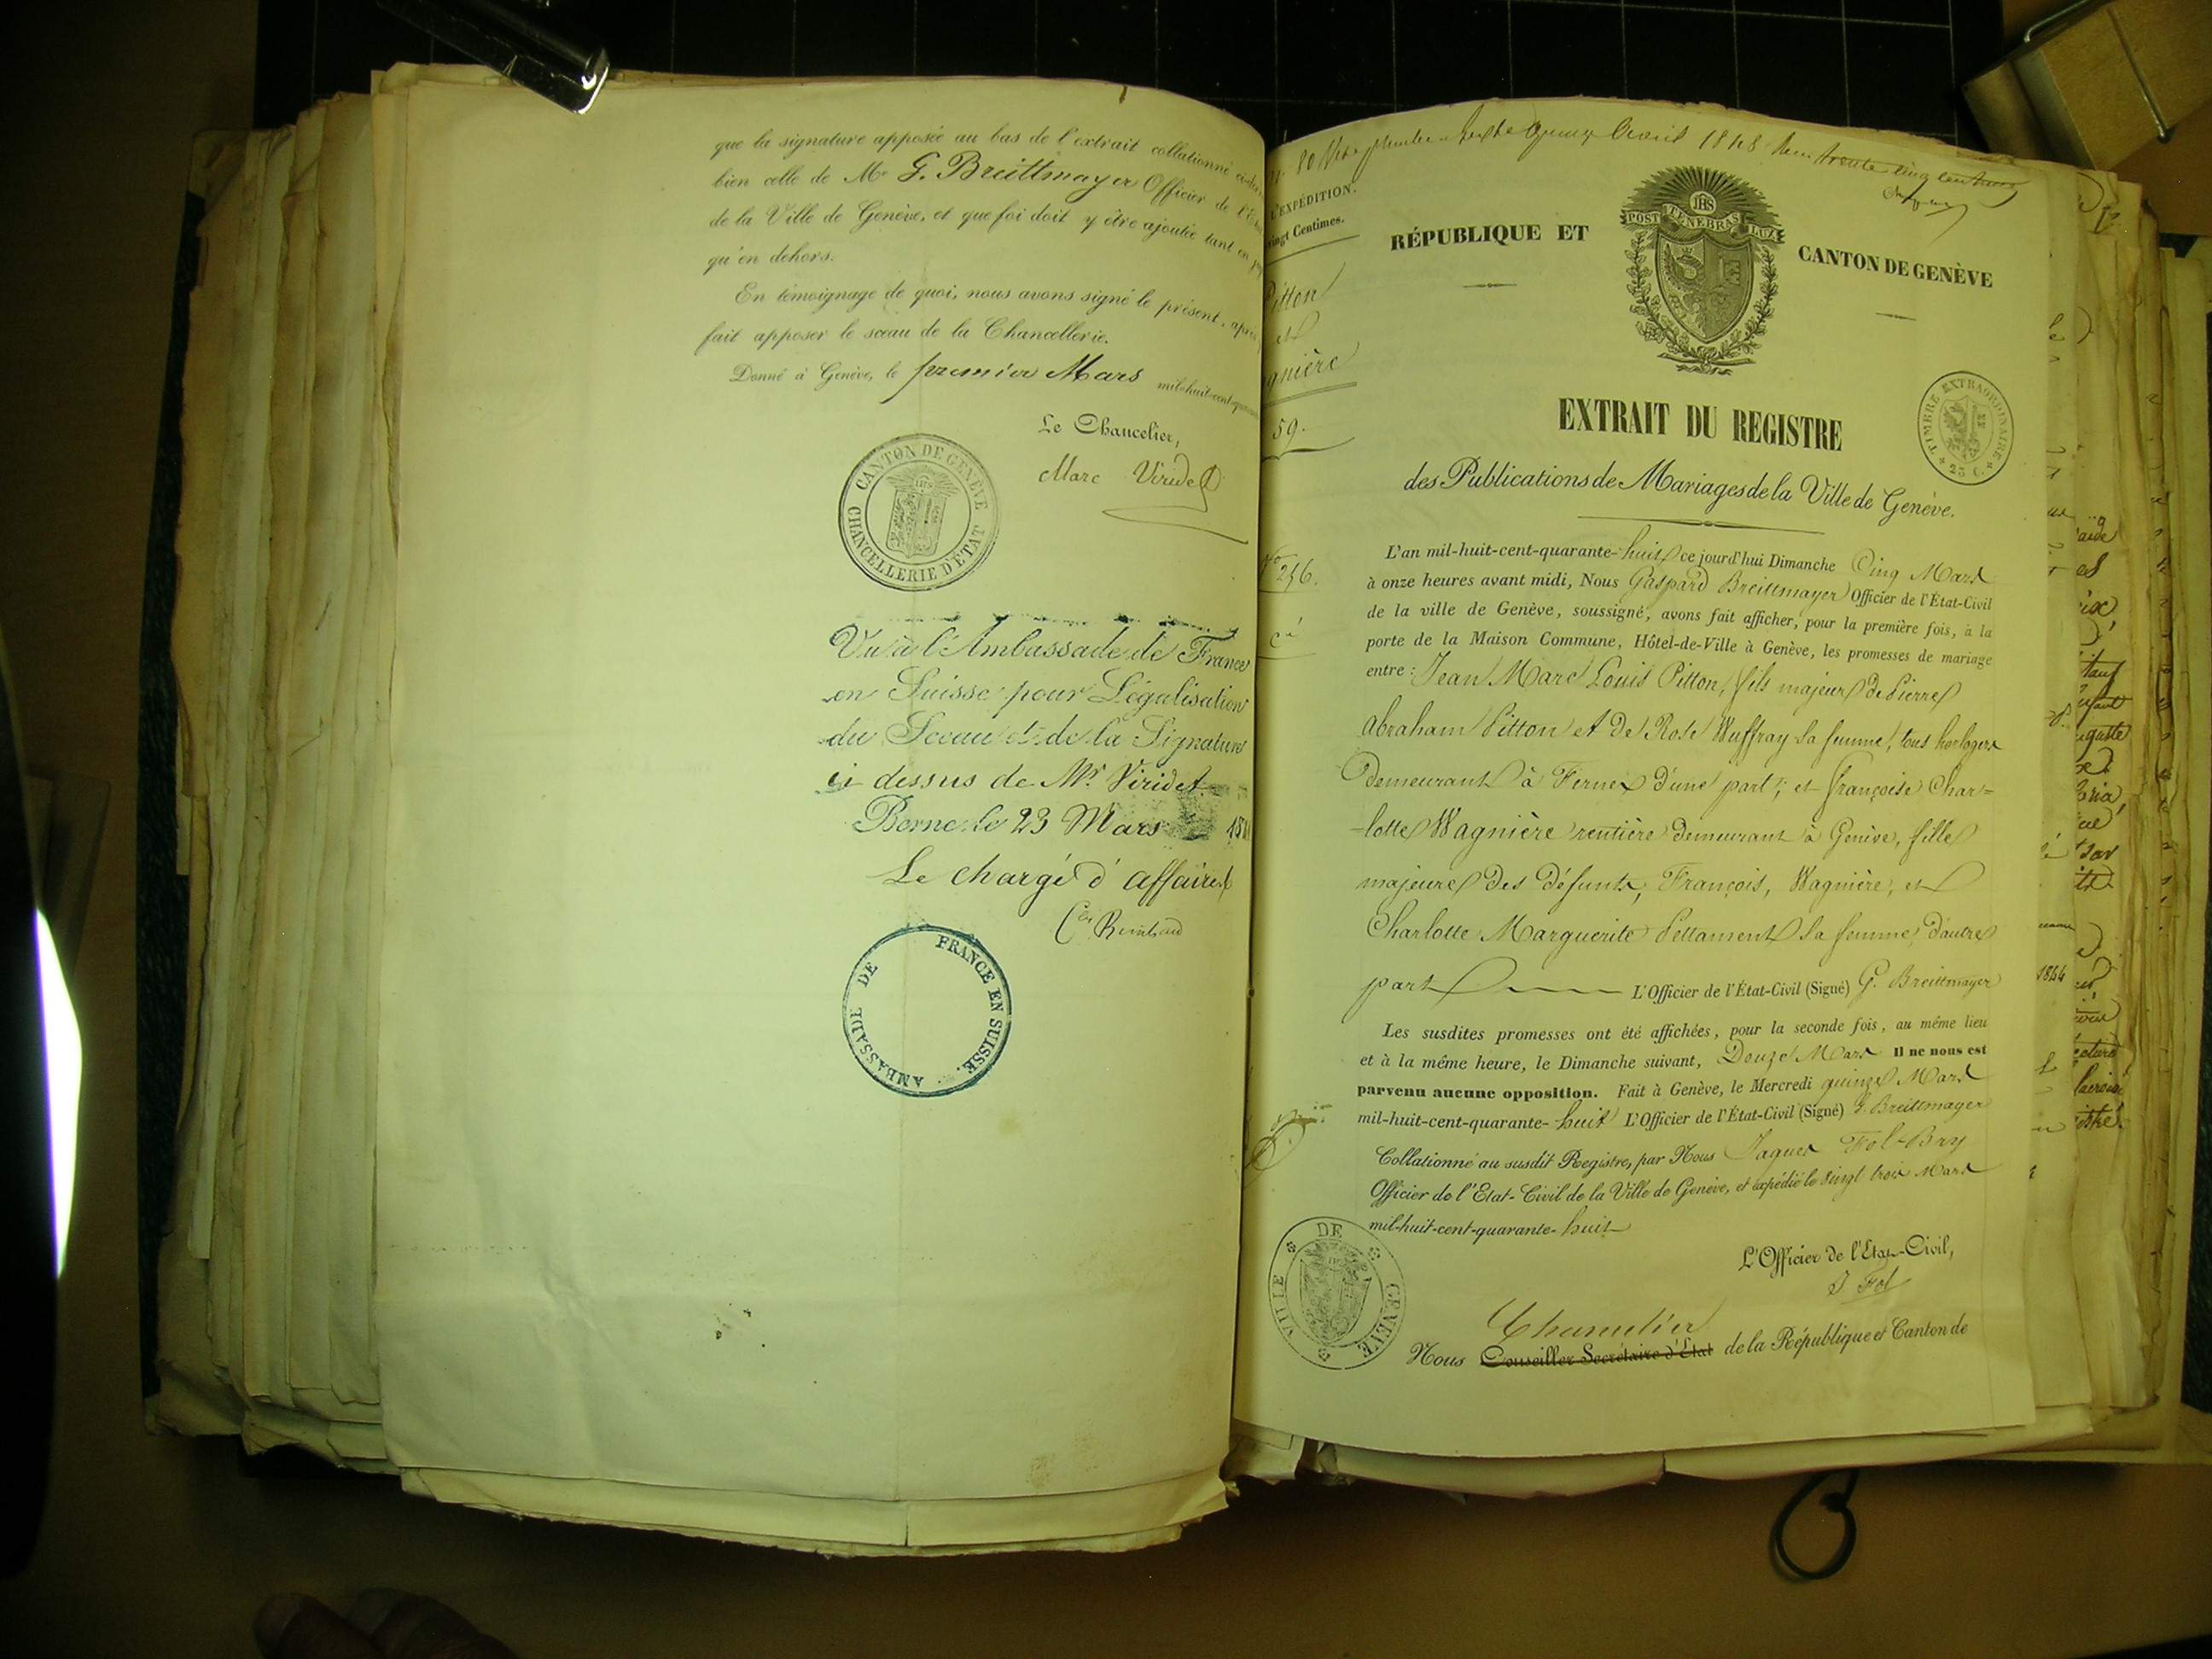 que la signature apposée au bas de l'extrait collationné
bien celle de Mr G. Breittmayer Officier de
de la Ville de Genève, et que foi doit y être ajoutée tant en
qu'en dehors.
En témoignage de quoi, nous avons signé le présent, après
fait apposer le sceau de la Chancellerie.
Donné à Genève, le premier Mars mil-huit-cent
Le Chancelier,
Marc Viridet
CANTON DE GENÈVE
CHANCELLERIE D'ÉTAT
Vu à l'Ambassade de France
en Suisse pour Légalisation
du Sceau et de la Signature
ci dessus de Mr. Viridet
Berne le 23 Mars
Le chargé d'affaires
AMBASSADE DE FRANCE EN SUISSE.
avril 1848 trente cinq centimes
L'EXPÉDITION.
vingt Centimes.
Pitton
et
gnière
59.
246.
RÉPUBLIQUE ET CANTON DE GENÈVE
POST TENEBRAS LUX
IHS
EXTRAIT DU REGISTRE
TIMBRE EXTRAORDINAIRE
25 C.
des Publications de Mariages de la Ville de Genève.
L'an mil-huit-cent-quarante-huit ce jourd'hui Dimanche Cinq Mars
à onze heures avant midi, Nous Gaspard Breittmayer Officier de l'État-Civil
de la ville de Genève, soussigné, avons fait afficher, pour la première fois, à la
porte de la Maison Commune, Hôtel-de-Ville à Genève, les promesses de mariage
entre : Jean Marc Louis Pitton, fils majeur de Pierre
Abraham Pitton et de Rose Wuffray sa femme, tous horlogers
demeurant à Fernex d'une part ; et Françoise Char=
-lotte Wagnière rentière demeurant à Genève, fille
majeure des défunts, François, Wagnière, et
Charlotte Marguerite Pellament sa femme, d'autre
part L'Officier de l'État-Civil (Signé) G. Breittmayer
Les susdites promesses ont été affichées, pour la seconde fois, au même lieu
et à la même heure, le Dimanche suivant, Douze Mars Il ne nous est
parvenu aucune opposition. Fait à Genève, le Mercredi quinze Mars
mil-huit-cent-quarante-huit L'Officier de l'État-Civil (Signé) G. Breittmayer
Collationné au susdit Registre, par Nous Jaques Fol-Bry
Officier de l'Etat-Civil de la Ville de Genève, et expédié le vingt trois Mars
mil-huit-cent-quarante-huit
VILLE DE GENEVE
L'Officier de l'Etat-Civil,
J Fol
Chancelier
Nous Conseiller Secrétaire d'Etat de la République et Canton de
1844